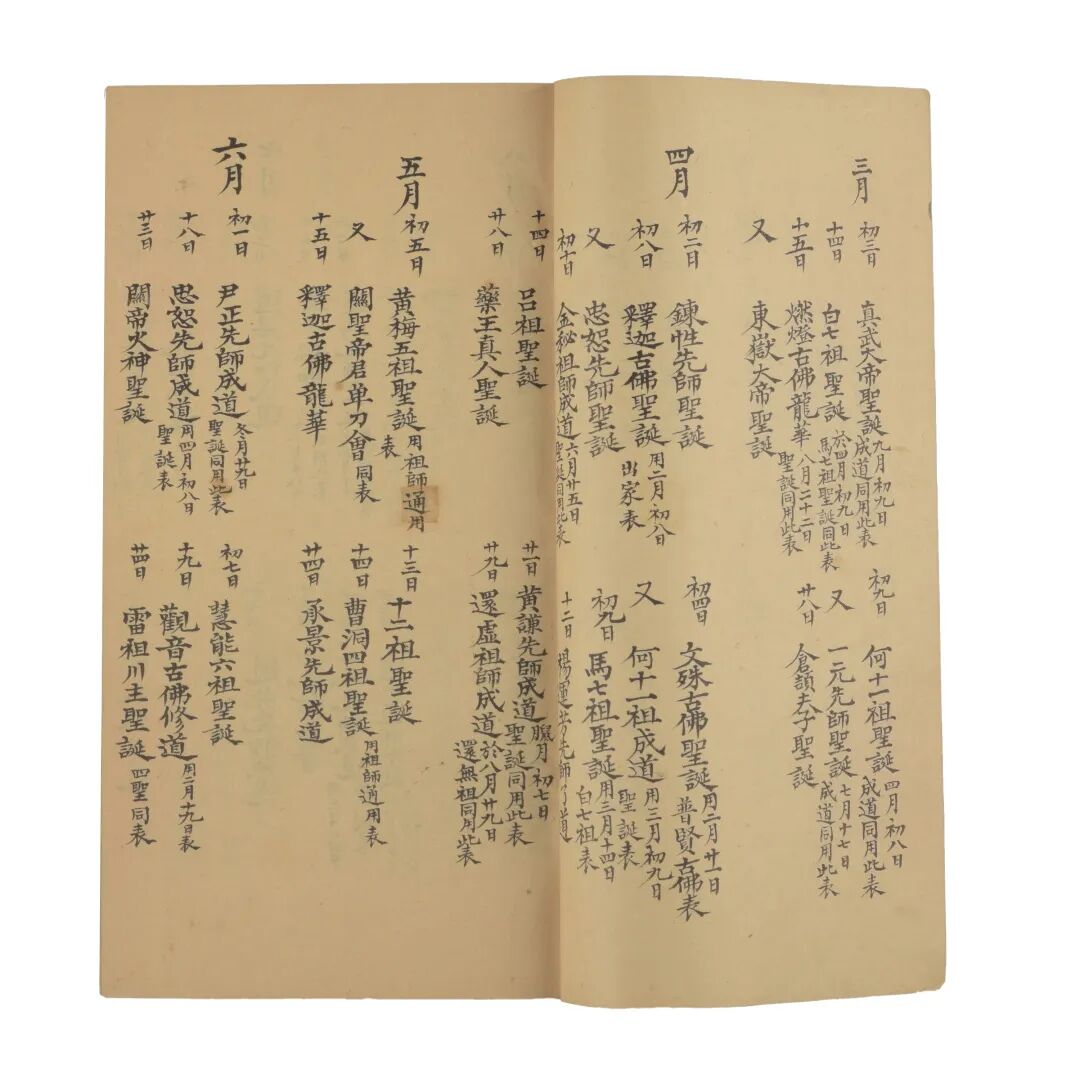 三月 初三日 真武大帝聖誕 九月初九日成道同用此表 初九日 何十一祖聖誕 四月初八日成道同用此表
十四日 白七祖聖誕 於四月初九日馬七祖聖誕同此表 又 一元先師聖誕 七月十七日成道同用此表
十五日 燃燈古佛龍華 八月二十二日聖誕同用此表 廿八日 倉頡夫子聖誕
又 東嶽大帝聖誕
四月 初二日 鍊性先師聖誕 初四日 文殊古佛聖誕 用二月廿一日普賢古佛表
初八日 釋迦古佛聖誕 用二月初八出家表 又 何十一祖成道 用三月初九日聖誕表
又 忠恕先師聖誕 初九日 馬七祖聖誕 用三月十四日白七祖表
初十日 金秘祖師成道 六月廿五日聖誕同用此表 十二日 楊運芳先師了道
十四日 呂祖聖誕 廿一日 黄謙先師成道 臘月初七日聖誕同用此表
廿八日 藥王真人聖誕 廿九日 還虛祖師成道 於八月廿九日還無祖同用此表
五月 初五日 黄梅五祖聖誕 用祖師通用表 十三日 十二祖聖誕
又 關聖帝君单刀會 同表 十四日 曹洞四祖聖誕 用祖師通用表
十五日 釋迦古佛龍華 廿四日 承景先師成道
六月 初一日 尹正先師成道 冬月廿九日聖誕同用此表 初七日 慧能六祖聖誕
十八日 忠恕先師成道 用四月初八日聖誕表 十九日 觀音古佛修道 用二月十九日表
廿三日 關帝火神聖誕 廿四日 雷祖川主聖誕 四聖同表